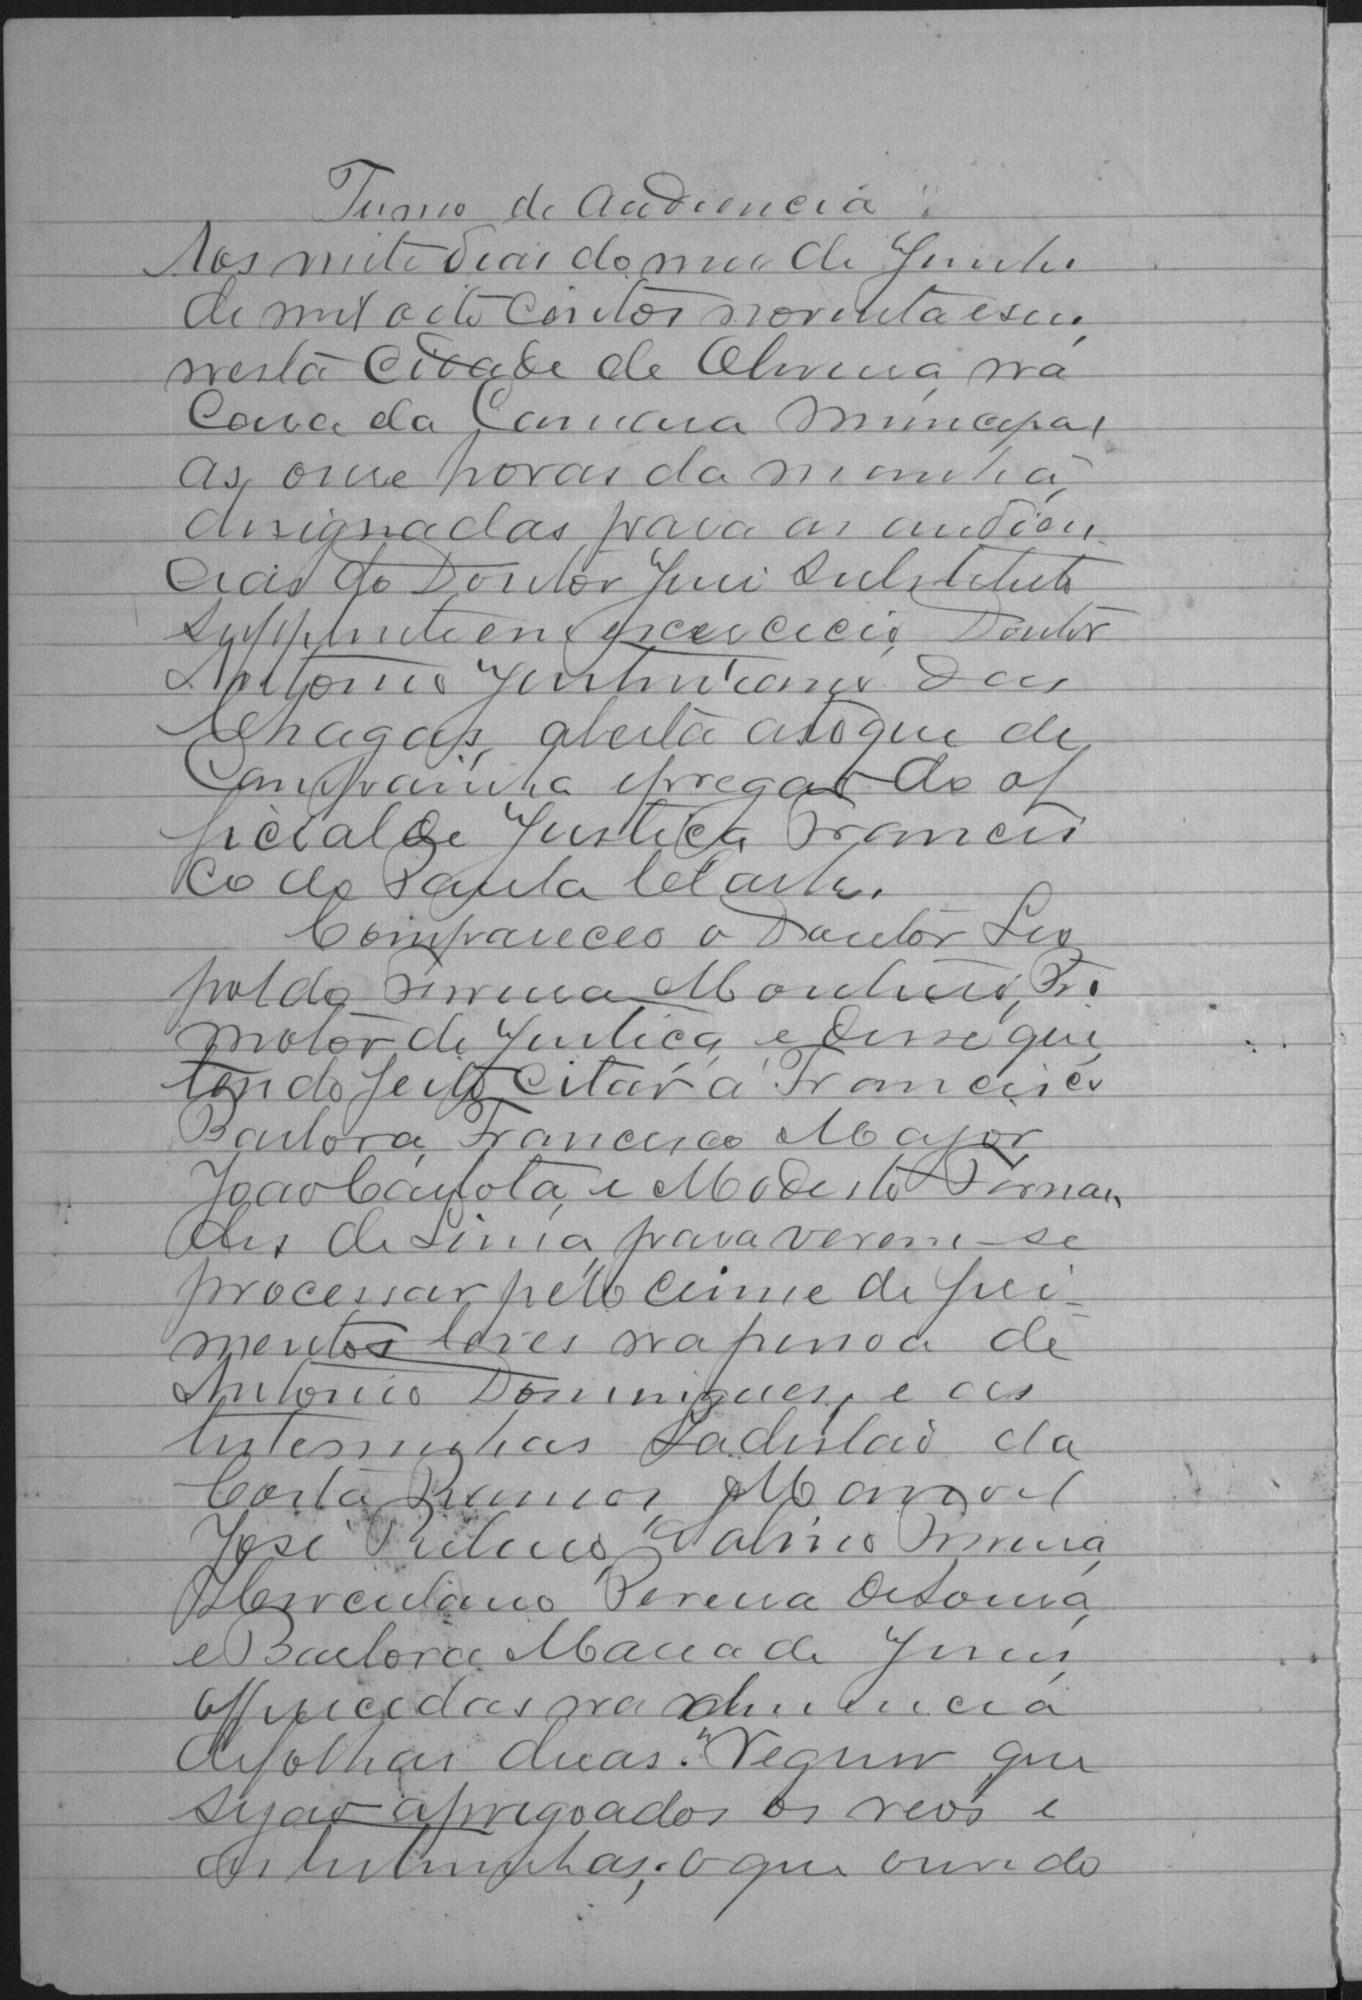 Termo de Audiencia
Aos vinte dias do mes de Junho
de mil oito centos noventa e seis,
nesta Cidade de Oliveira, na
Casa da Camara Municipal
as onze horas da manhã,
designadas para as audien-
cias do Doutor Juiz Substituto
Supplente em excercicio, Doutor
Antonio Justiniano das
Chagas, aberta a toque de
Campainha e pregão do of
ficial de Justiça Francis
co de Paula
Compareceo o Doutor Leo
poldo Ferreira Monteiro, Pro
motor de Justiça, e disse que,
tendo feito citar a Francisco
Barbosa, Francisco Major,
João Carlota, e Modesto Fernan
des de Lima, para verem-se
processar pelo crime de feri-
mentos leves na pessoa de
Antonio Domingues, e as
testemunhas Ladislao da
Costa Ramos, Manoel
José Ribeiro, Galvino Ferreira,
Herculano Pereira de Sousa,
e Barbora Maria de Jesus,
offerecidas na denuncia
de folhas duas. Requer que
sejão apregoados os reos e
as testemunhas; o que ouvido